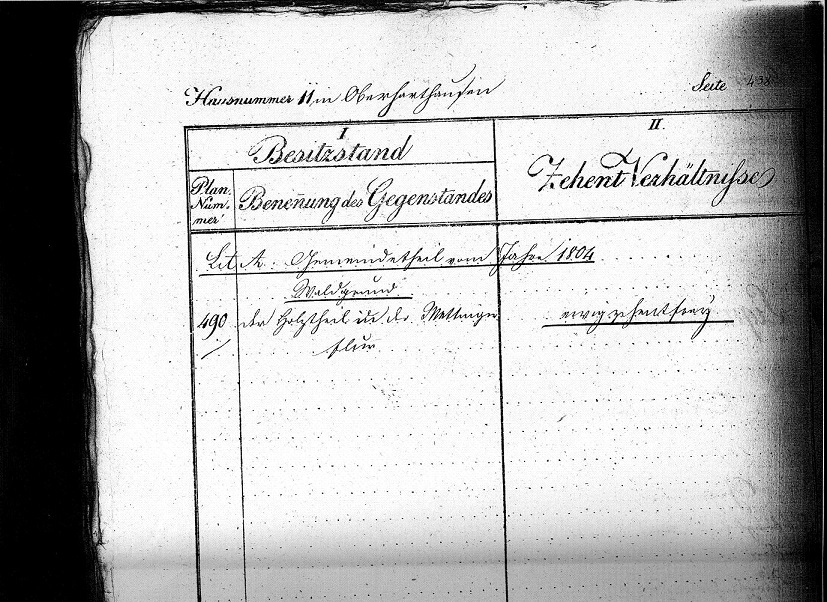 Hausnummer 11 in Oberharthausen
Seite 438
I
Besitzstand
II.
Zehent Verhältnisse
Plan-
Num-
mer
Benen̄ung des Gegenstandes
Lit. A. Gemeindetheil vom Jahre 1804
Waldgrund
490 der Holztheil in der Mettinger
flur
ewig zehentfrey